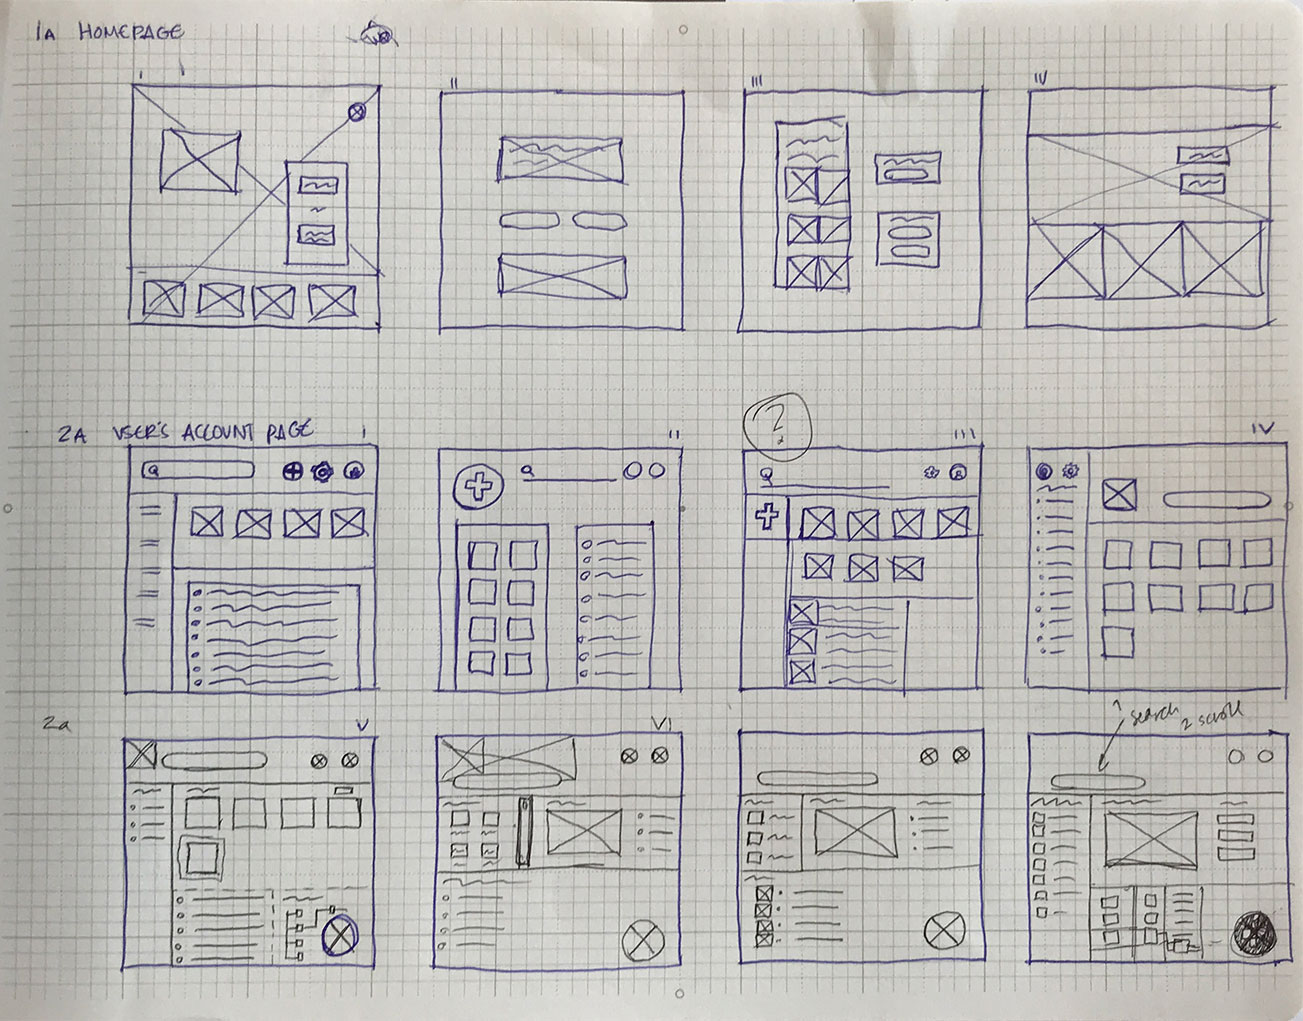 1A HOMEPAGE
I
II
III
IV
?
2A USER'S ACCOUNT PAGE
I
II
III
IV
2a
V
VI
1 search
2 scroll